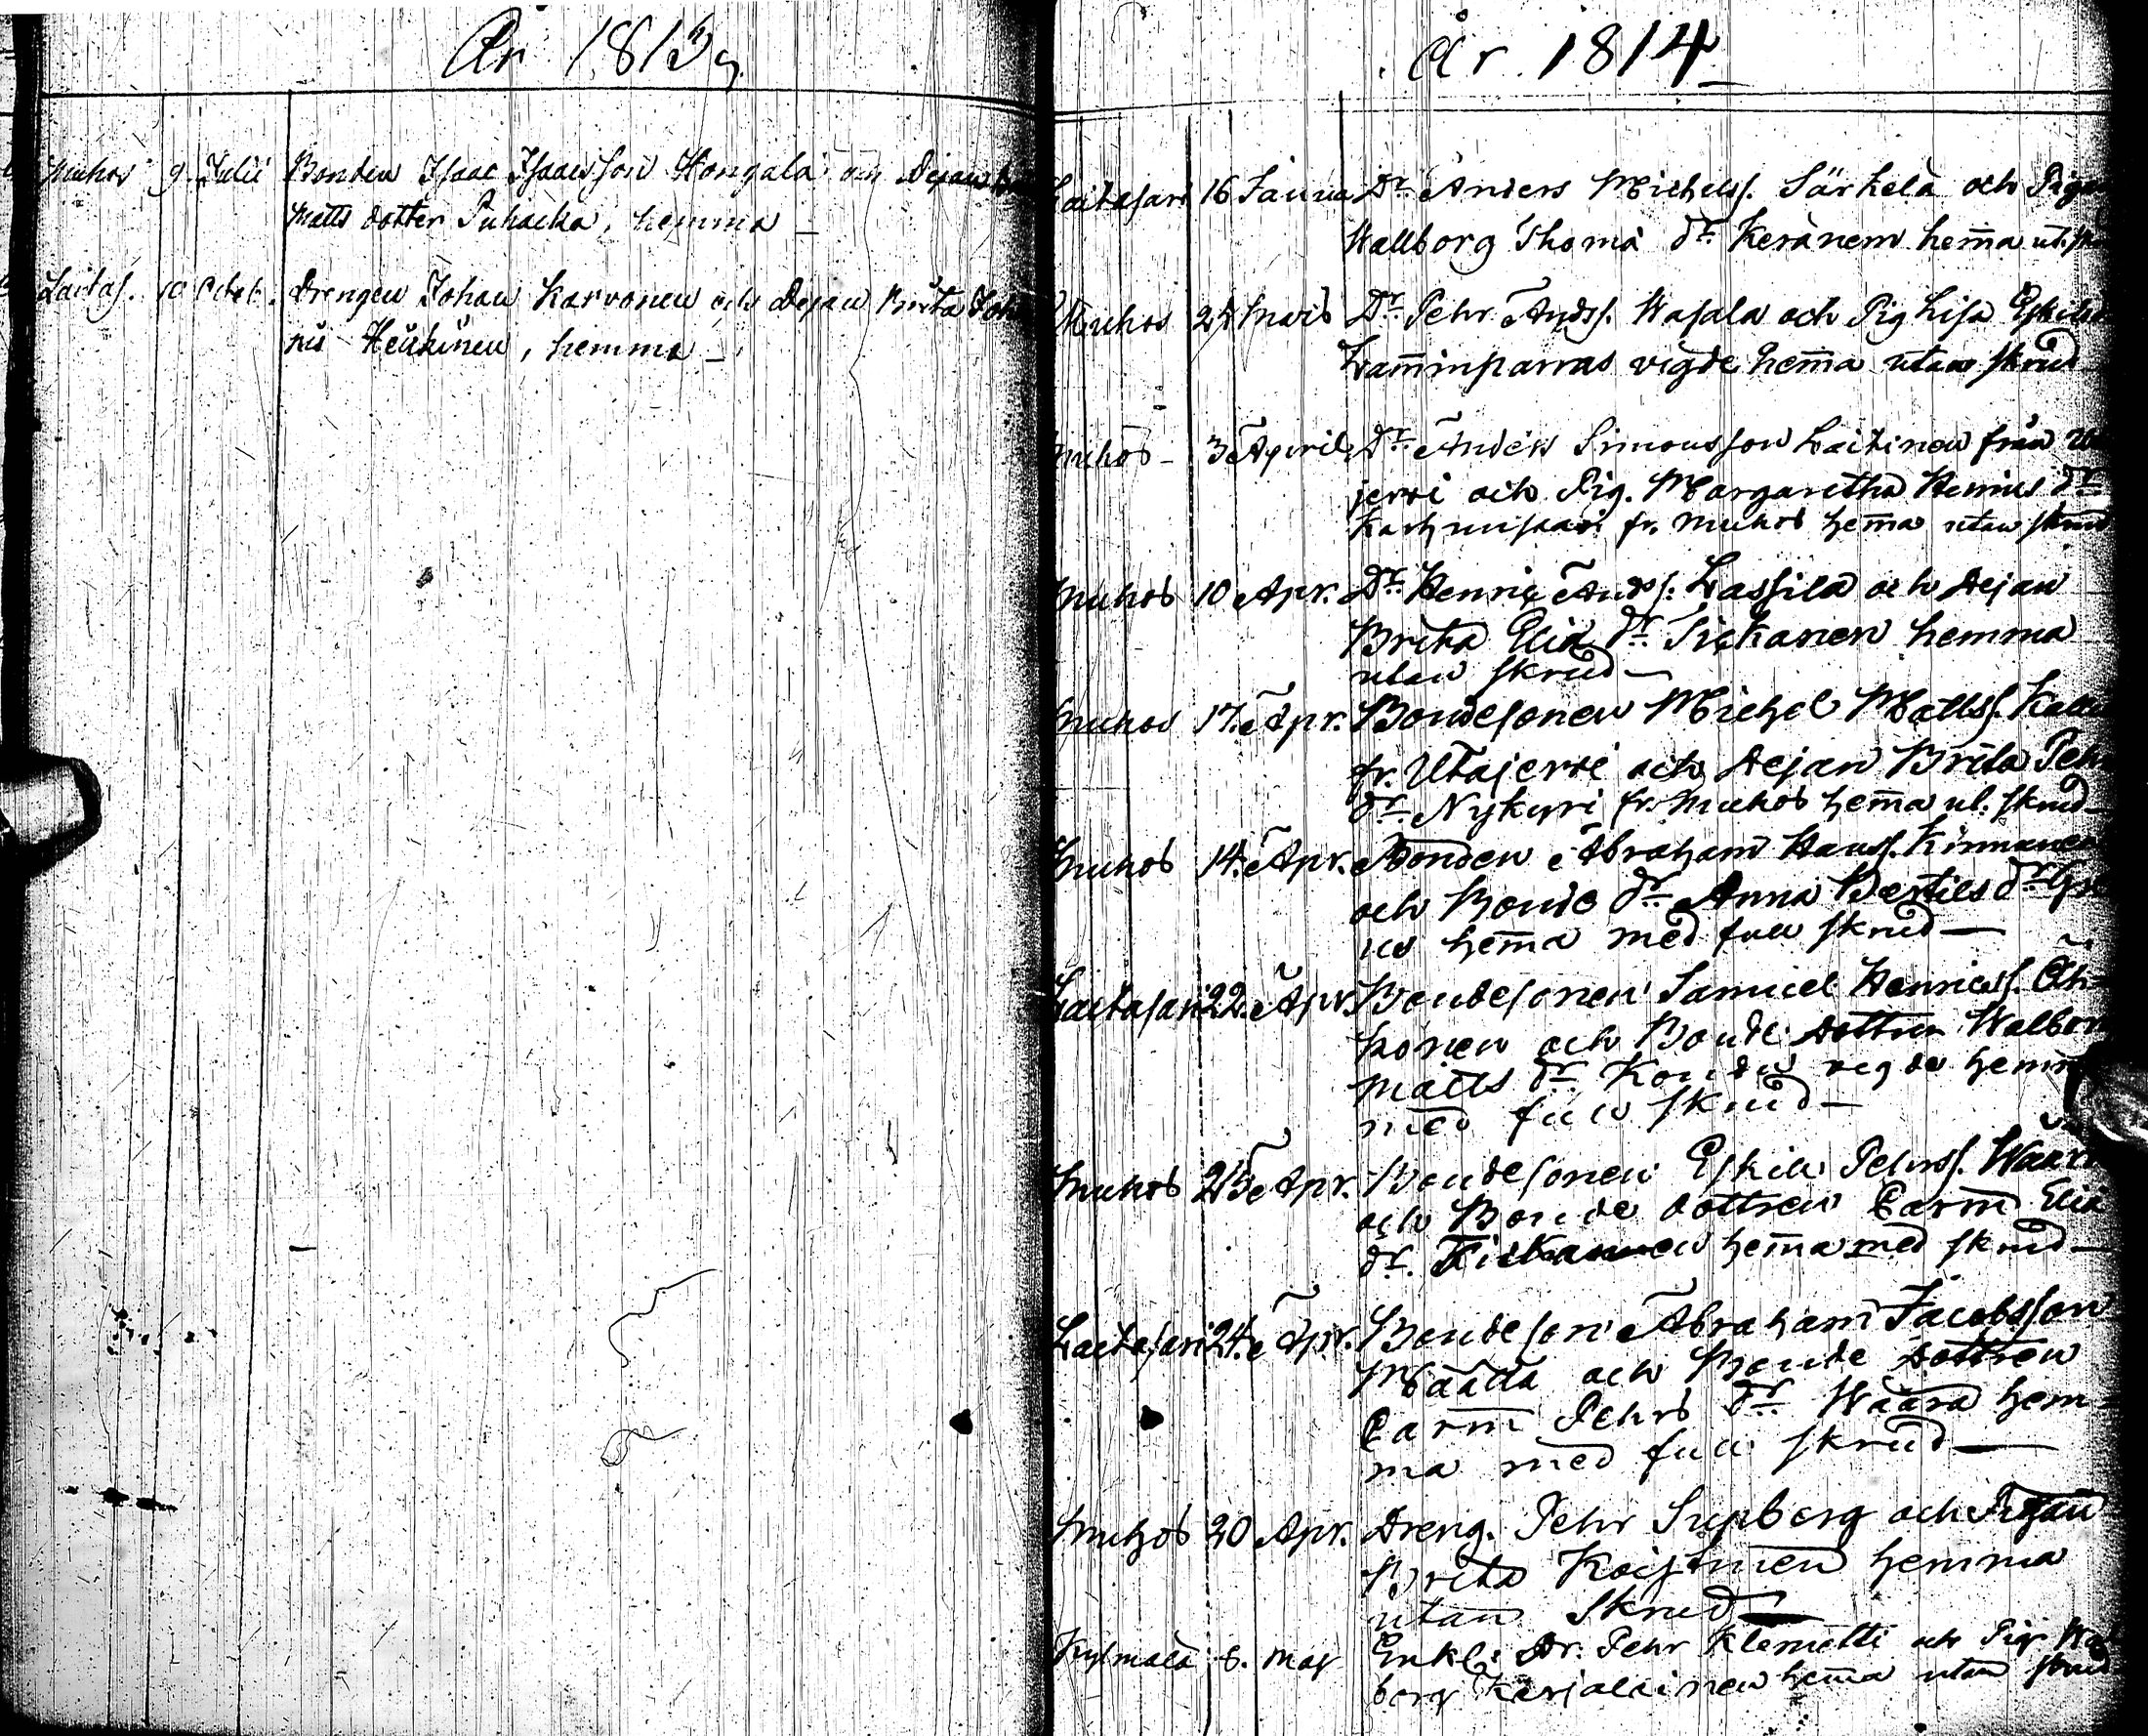 År 1813
Muhos 9. Julii Bonden Isaac Isaacsson Hongala och Dejan
Matts dotter Puhacka, hemma
Laitas. 10 Octob. Drengen Johan Karvonen och Dejan Brita Joh
nis Heickinen, hemma
år 1814
Laitasari 16 Janua Dr. Anders Michelss. Särkelä och Piga
Wallborg Thomæ dr. Keränen hem̄a ut. sk
Muhos 24 Mars Dr. Pehr Andss. Wasala och Pig Lisa Eskils
Lam̄inparras vigde hem̄a utan skrud
Muhos 3 April Dr. Anders Simonsson Laitinen från
jervi och Pig. Margaretha Henrics dr.
fr. Muhos hem̄a utan skrud
Muhos 10 Apr. Dr. Henric Andss. Lassila och Dejan
Brita Eliæ dr. Tickanen hemma
utan skrud
Muhos 17. Apr. Bondesonen Michel Mattss.
fr. Utajervi och Dejan Brita Pehrs
dr. Nykyri fr. Muhos hem̄a ut. skrud
Muhos 14. Apr. Bonden Abraham Hanss. Kinnunen
och Bonde dr. Anna Bertils dr.
hem̄a med full skrud
Laitasari 22. Apr. Bondesonen Samuel Henricss.
konen och Bonde dottren Walbor
Matts dr. vigde hemm
med full skrud
Muhos 25 Apr. Bondesonen Eskil Pehrss. Waara
och Bonde dottren Carin Eliæ
dr. Tickanen hem̄a med skrud
Laitasari 24. Apr. Bondeson Abraham Jacobsson
Määttä och Bonde dottren
Carin Pehrs dr. Waara hem
ma med full skrud
Muhos 20 Apr. Dreng. Pehr Supberg och Pigan
Brita Koistinen hemma
utan skrud
Kylmälä 8. Maj Enkl. Dr. Pehr Klemetti och Pig. Wal
borg Karjalainen hem̄a utan skrud